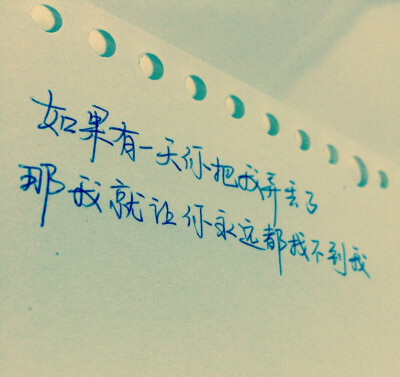 如果有一天你把我弄丢了
那我就让你永远都找不到我